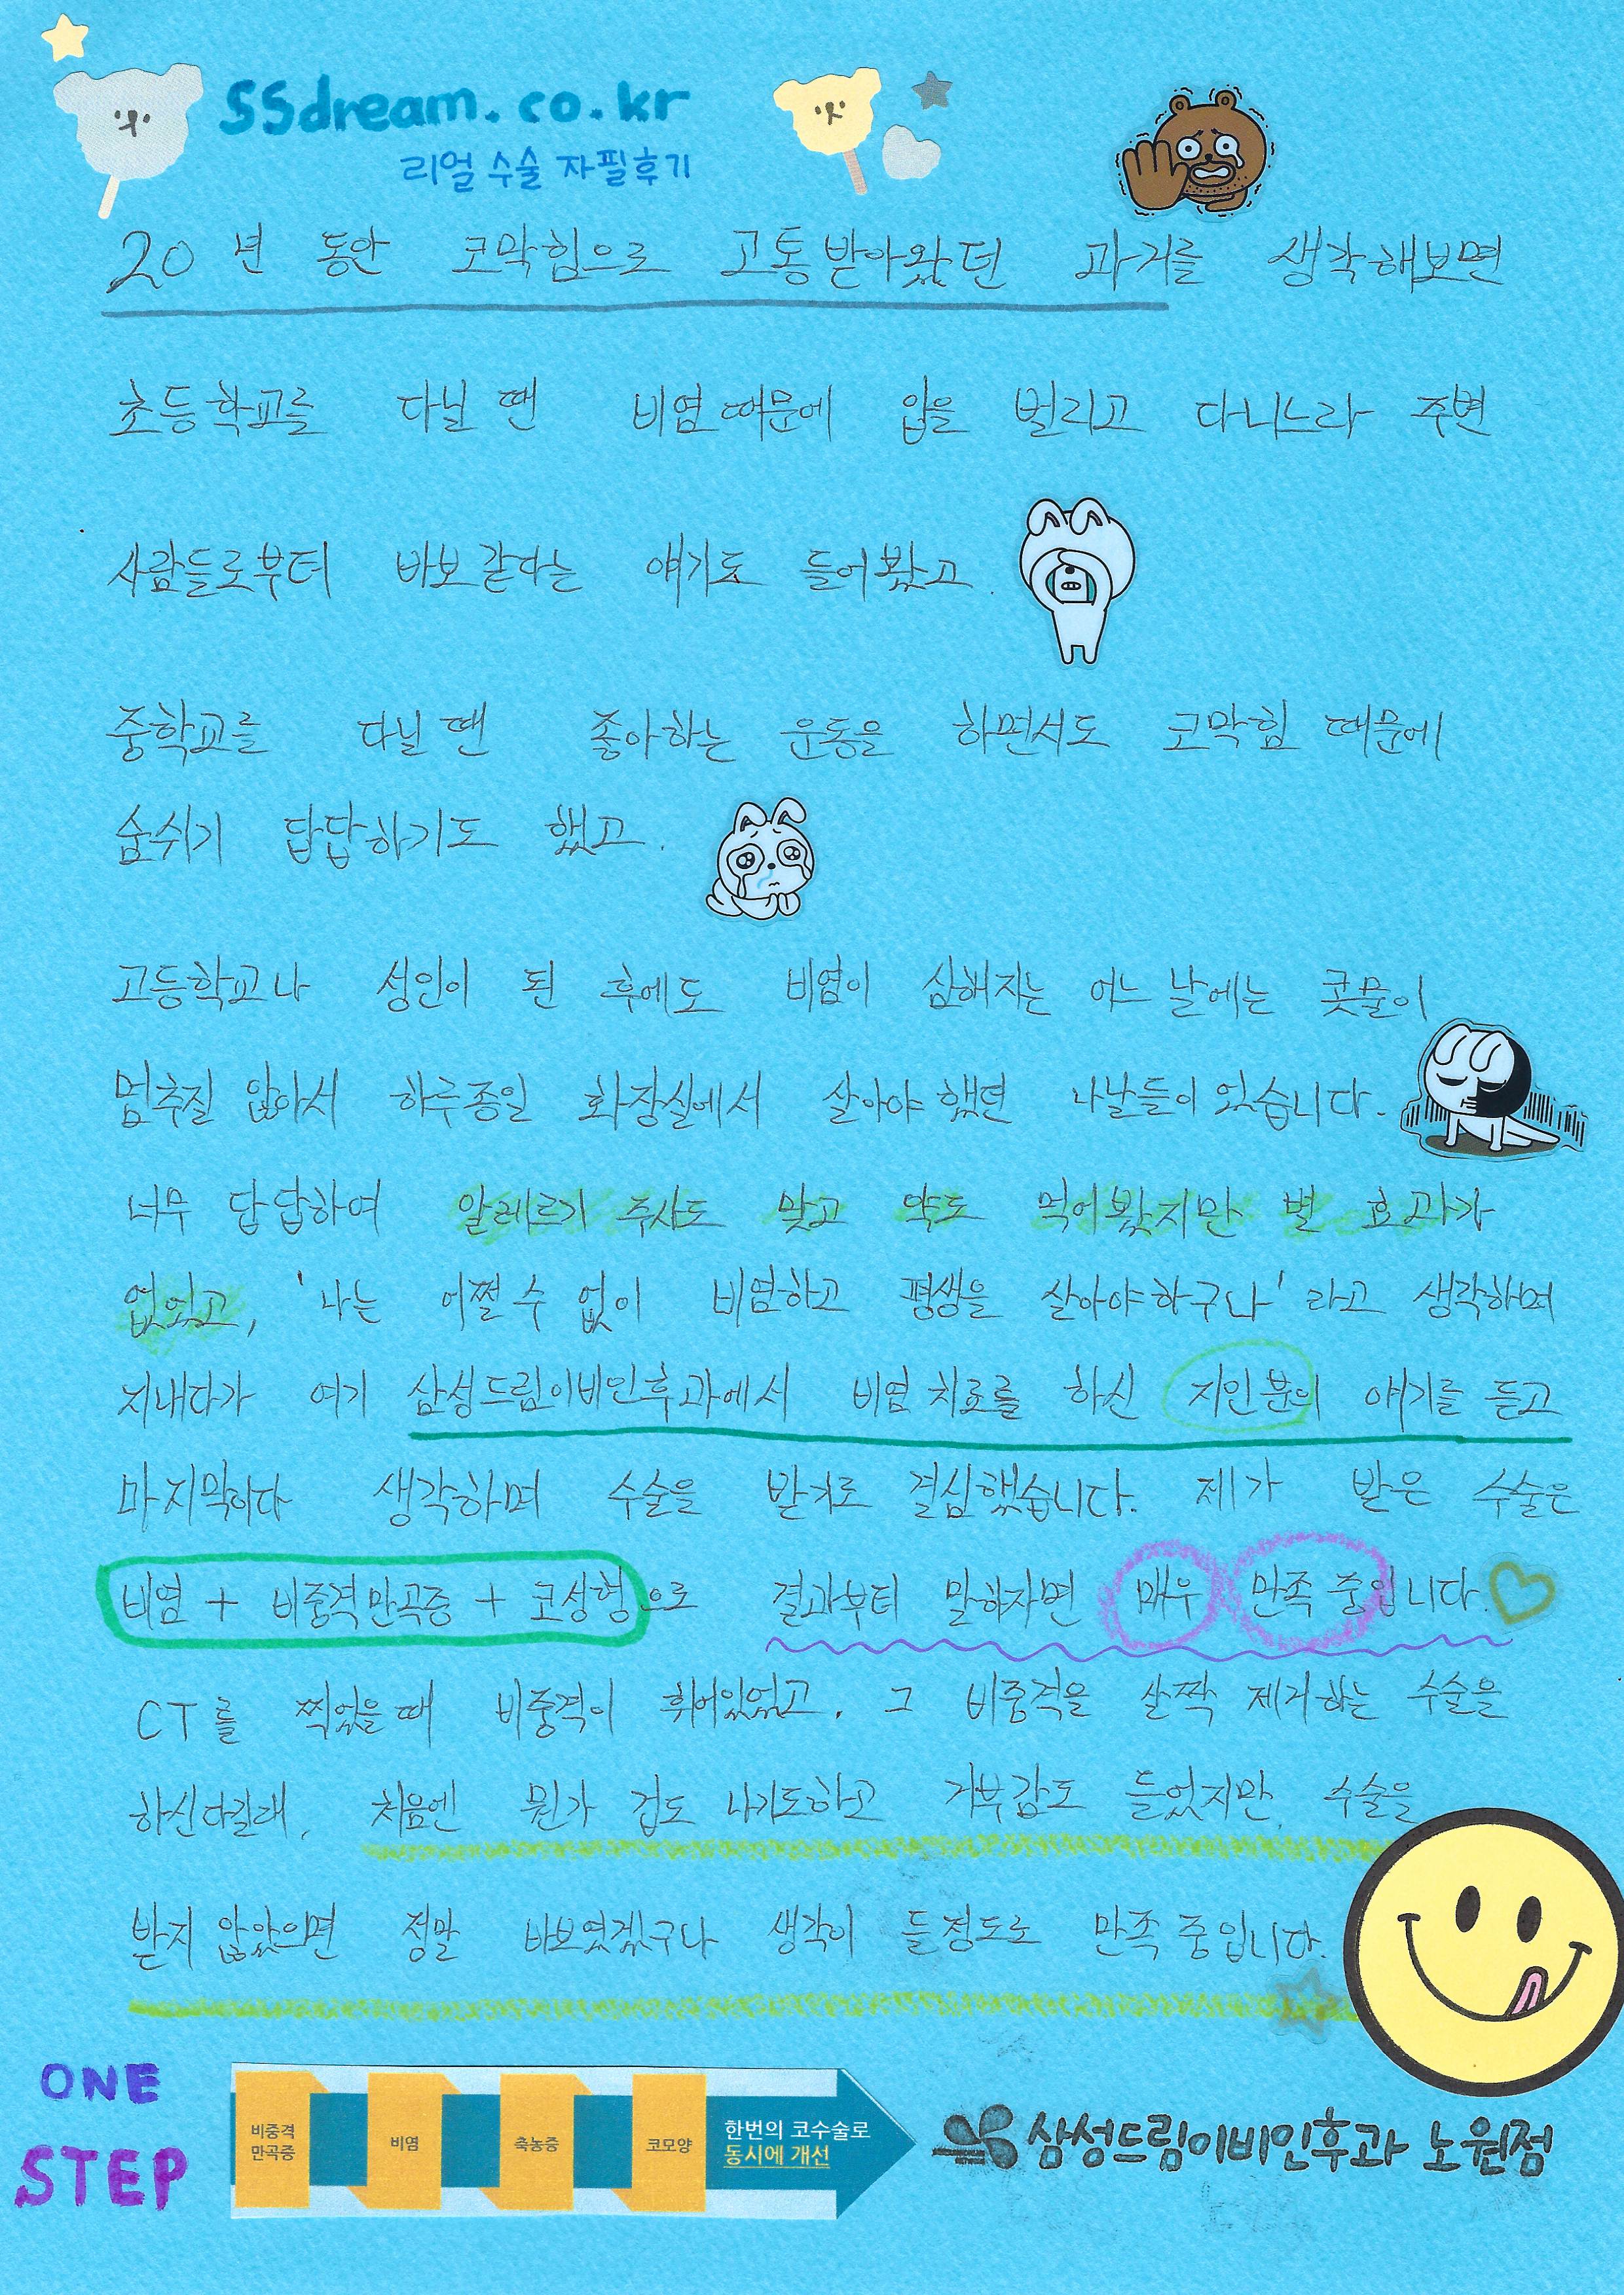 SSdream.co.kr
리얼 수술 자필후기
20년 동안 코막힘으로 고통받아왔던 과거를 생각해보면
초등학교를 다닐 땐 비염때문에 입을 벌리고 다니느라 주변
사람들로부터 바보같다는 얘기도 들어봤고.
중학교를 다닐 땐 좋아하는 운동을 하면서도 코막힘 때문에
숨쉬기 답답하기도 했고.
고등학교나 성인이 된 후에도 비염이 심해지는 어느 날에는 콧물이
멈추질 않아서 하루종일 화장실에서 살아야 했던 나날들이 있습니다.
너무 답답하여 알레르기 주사도 맞고 약도 먹어봤지만 별 효과가
없었고, '나는 어쩔 수 없이 비염하고 평생을 살아야하구나' 라고 생각하며
지내다가 여기 삼성드림이비인후과에서 비염 치료를 하신 지인분의 얘기를 듣고
마지막이다 생각하며 수술을 받기로 결심했습니다. 제가 받은 수술은
비염 + 비중격만곡증 + 코성형으로 결과부터 말하자면 매우 만족 중입니다.
CT를 찍었을때 비중격이 휘어있었고, 그 비중격을 살짝 제거하는 수술을
하신다길래, 처음엔 뭔가 겁도 나기도하고 거부감도 들었지만, 수술을
받지 않았으면 정말 바보였겠구나 생각이 들정도로 만족 중입니다.
ONE
STEP
비중격
만곡증
비염
축농증
코모양
한번의 코수술로
동시에 개선
삼성드림이비인후과 노원점